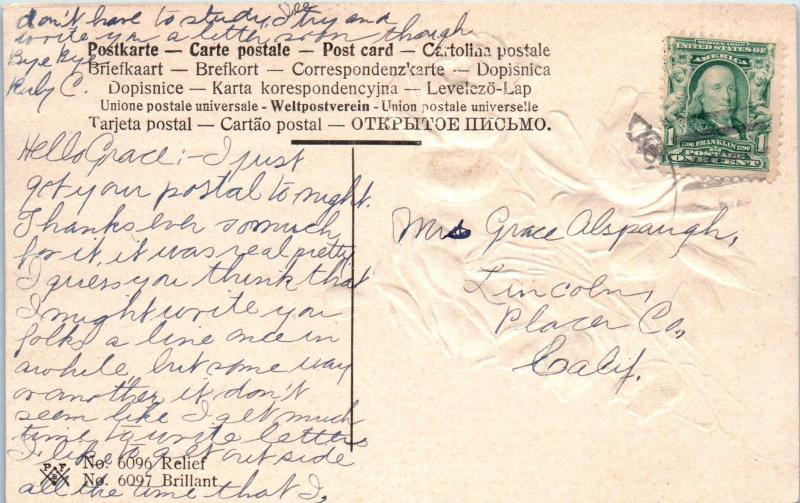 don't have to study, I'll try and
write you a letter soon though
Bye Bye
Ruby C.
Postkarte — Carte postale — Post card — Cartolina postale
Briefkaart — Brefkort — Correspondenz'karte — Dopisnica
Dopisnice — Karta korespondencyjna — Levelező-Lap
Unione postale universale - Weltpostverein - Union postale universelle
Tarjeta postal — Cartão postal — ОТКРЫТОЕ ПИСЬМО.
SERIES 1902
UNITED STATES OF
AMERICA
1 1706 FRANKLIN 1790 1
POSTAGE
ONE CENT
Hello Grace:- I just
got your postal to night.
Thanks ever so much
for it, it was real pretty
I guess you think that
I might write you
folks a line once in
awhile, but some way
or another it don't
seem like I get much
time to write letters
I like to get out side
all the time that I
Mrs Grace Alspaugh,
Lincoln,
Placer Co.,
Calif.
P F
B
No. 6096 Relief
No. 6097 Brillant